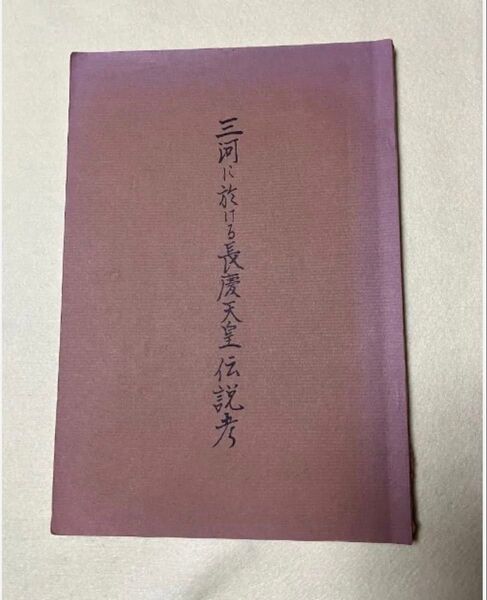 三河に於ける長慶天皇伝説考